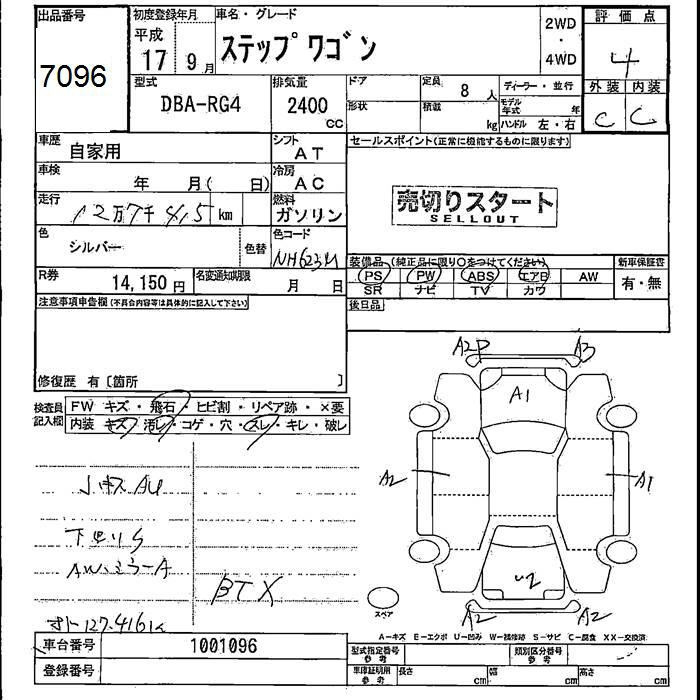 出品番号 初度登録年月 車名・グレード 2WD・4WD 評価点
7096 平成 17年 9月 ステップワゴン 4
型式 排気量 ドア 定員 8人 ディーラー・並行 外装 内装
DBA-RG4 2400cc 形状 積載 kg モデル年式 年 C C
ハンドル 左・右
車歴 自家用 シフト AT セールスポイント(正常に機能するものに限ります)
車検 年 月( 日) 冷房 AC
走行 12万7千415km 燃料 ガソリン
売切りスタート
SELLOUT
色 シルバー 色替 色コード NH623M
装備品 (純正品に限り○をつけてください) 新車保証書
PS PW ABS エアB AW 有・無
SR ナビ TV カワ
R券 14,150円 名変通知期限 月 日
後日品
注意事項申告欄(不具合内容等は具体的に記入して下さい)
修復歴 有〔箇所 〕
検査員記入欄 FW キズ・飛石・ヒビ割・リペア跡・×要
内装 キズ・汚レ・コゲ・穴・スレ・キレ・破レ
A2P A3
A1
A2 A1
小キズAU
下廻りS
BTX
U2
A2 A2
スペア
オト127.416K
A-キズ E-エクボ U-凹み W-補修跡 S-サビ C-腐食 XX-交換済
車台番号 1001096 型式指定番号 参考 類別区分番号 参考
登録番号 車庫証明用 参考 長さ cm 幅 cm 高さ cm